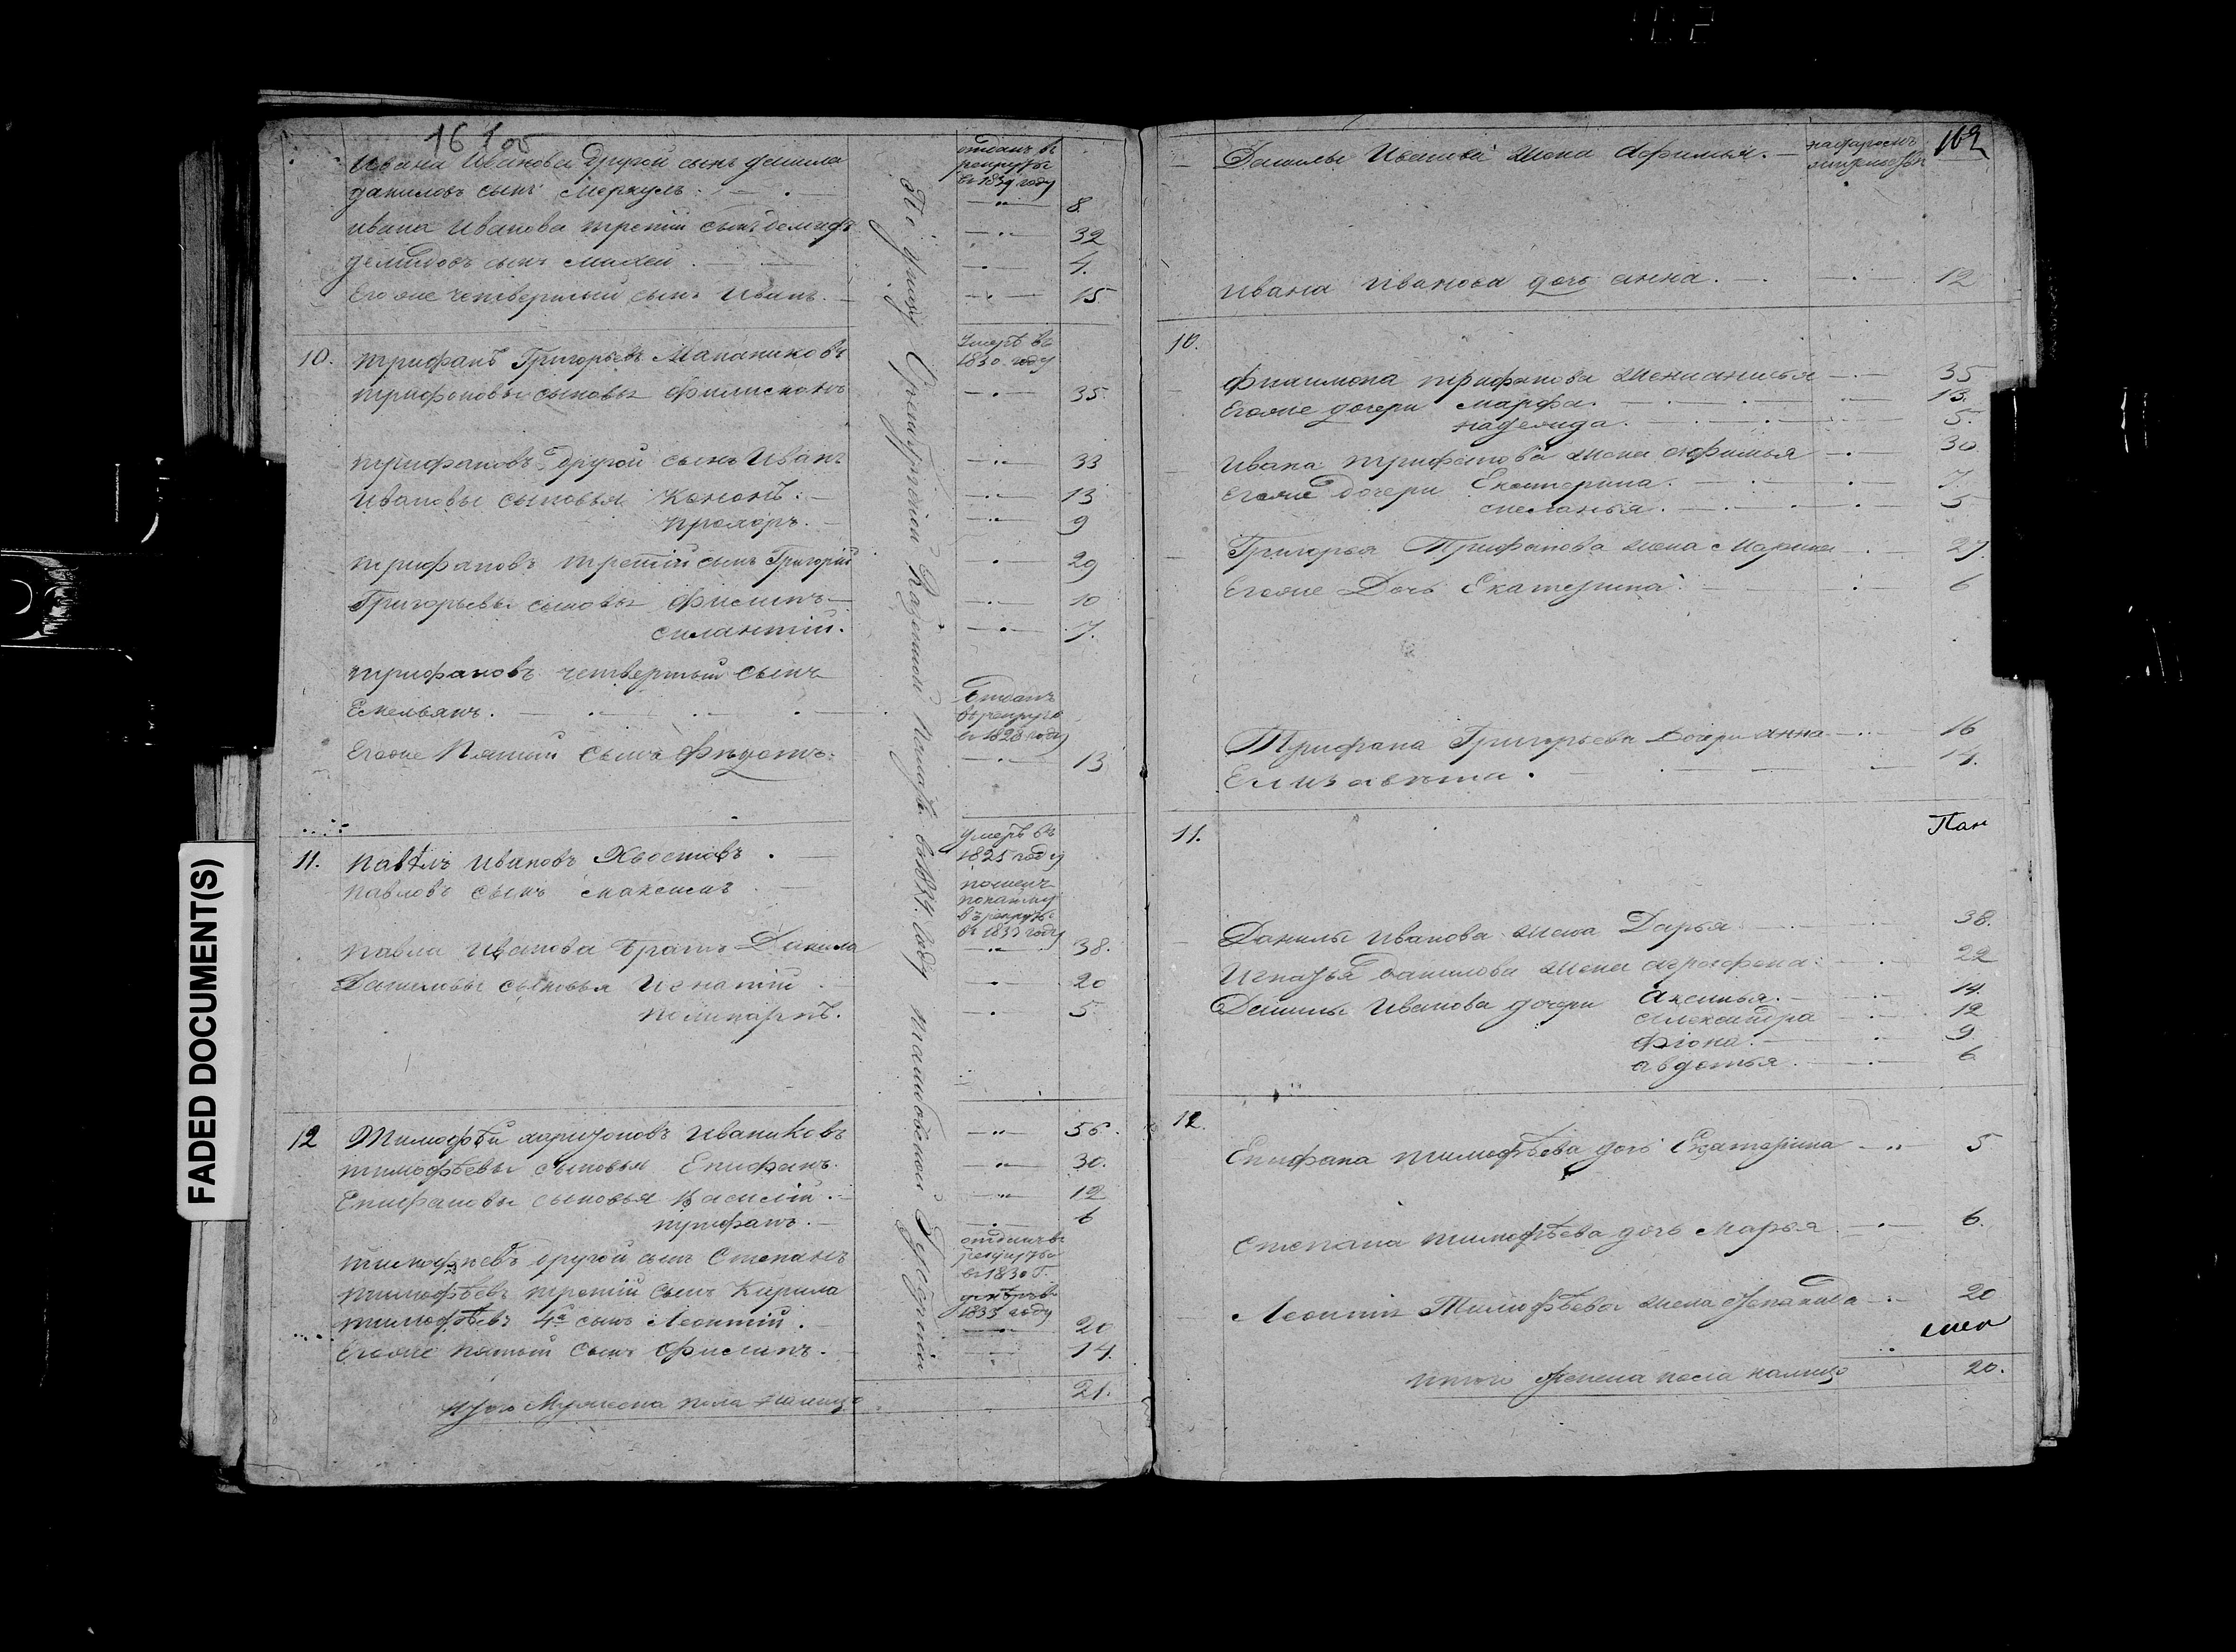 102
FADED DOCUMENT(S)
Ивана Иванова другой сынъ данила
даниловъ сынъ Меркулъ.
отданъ в
рекруты
въ 1834 году
8.
ивана Иванова третий сынъ демидъ
32
демидовъ сынъ михей.
4.
Егоже четвертый сынъ Иванъ.
15
10. трифанъ Григорьевъ
умеръ въ
1830 году
трифоновы сыновья филимонъ
35
трифановъ другой сынъ Иванъ
33
ивановы сыновья Кононъ.
13
прохоръ.
9
трифановъ третий сынъ Григорий
29
Григорьевы сыновья филипъ
10
силантий.
7.
трифановъ четвертый сынъ
Емельянъ.
отданъ
в рекруты
в 1828 году
Егоже Пятый сынъ Федотъ.
13
11. павелъ ивановъ Хвостовъ.
умеръ въ
1825 году
павловъ сынъ максимъ
в рекруты
въ 1833 году
павла иванова братъ Данила
38.
Даниловы сыновья Игнатий
20
поликарпъ.
5
12 Тимофей ларионовъ Иваниковъ
56.
тимофѣевы сыновья Епифанъ.
30.
Епифановы сыновья Василій.
12
трифанъ.
6
тимофеевъ другой сынъ Степанъ
отданъ въ
рекруты
въ 1830 г.
тимофѣевъ третій сынъ Кирила
1835 году
тимофѣевъ 4й сынъ Леонтій.
20
Егоже пятый сынъ Филипъ.
14.
итого Мужеска пола налицо
21.
По указу Оренбургской Казенной Палаты 1834. году
Данилы Иванова жена Афимья.
Ивана Иванова дочь анна.
12
10.
филимона трифанова жена
35
Егоже дочери марфа.
13.
надежда.
5.
Ивана трифанова жена афимья
30
Егоже дочери Екатерина.
7.
меланья.
5
Григорья Трифанова жена Марина
27.
Егоже Дочь Екатерина.
6
Трифана Григорьева Дочери анна
16
Елизавета.
14.
11.
Пан
Данилы иванова жена Дарья
38.
Игнатья данилова жена аграфена.
22
Данилы Иванова дочери Аксинья.
14.
александра
12
фіона.
9
авдотья.
6.
12.
Епифана тимофѣева дочь Екатерина
5
Степана тимофѣева дочь Марья
6.
Леонтия Тимофѣева жена Степанида
20
итого женска пола налицо
20.